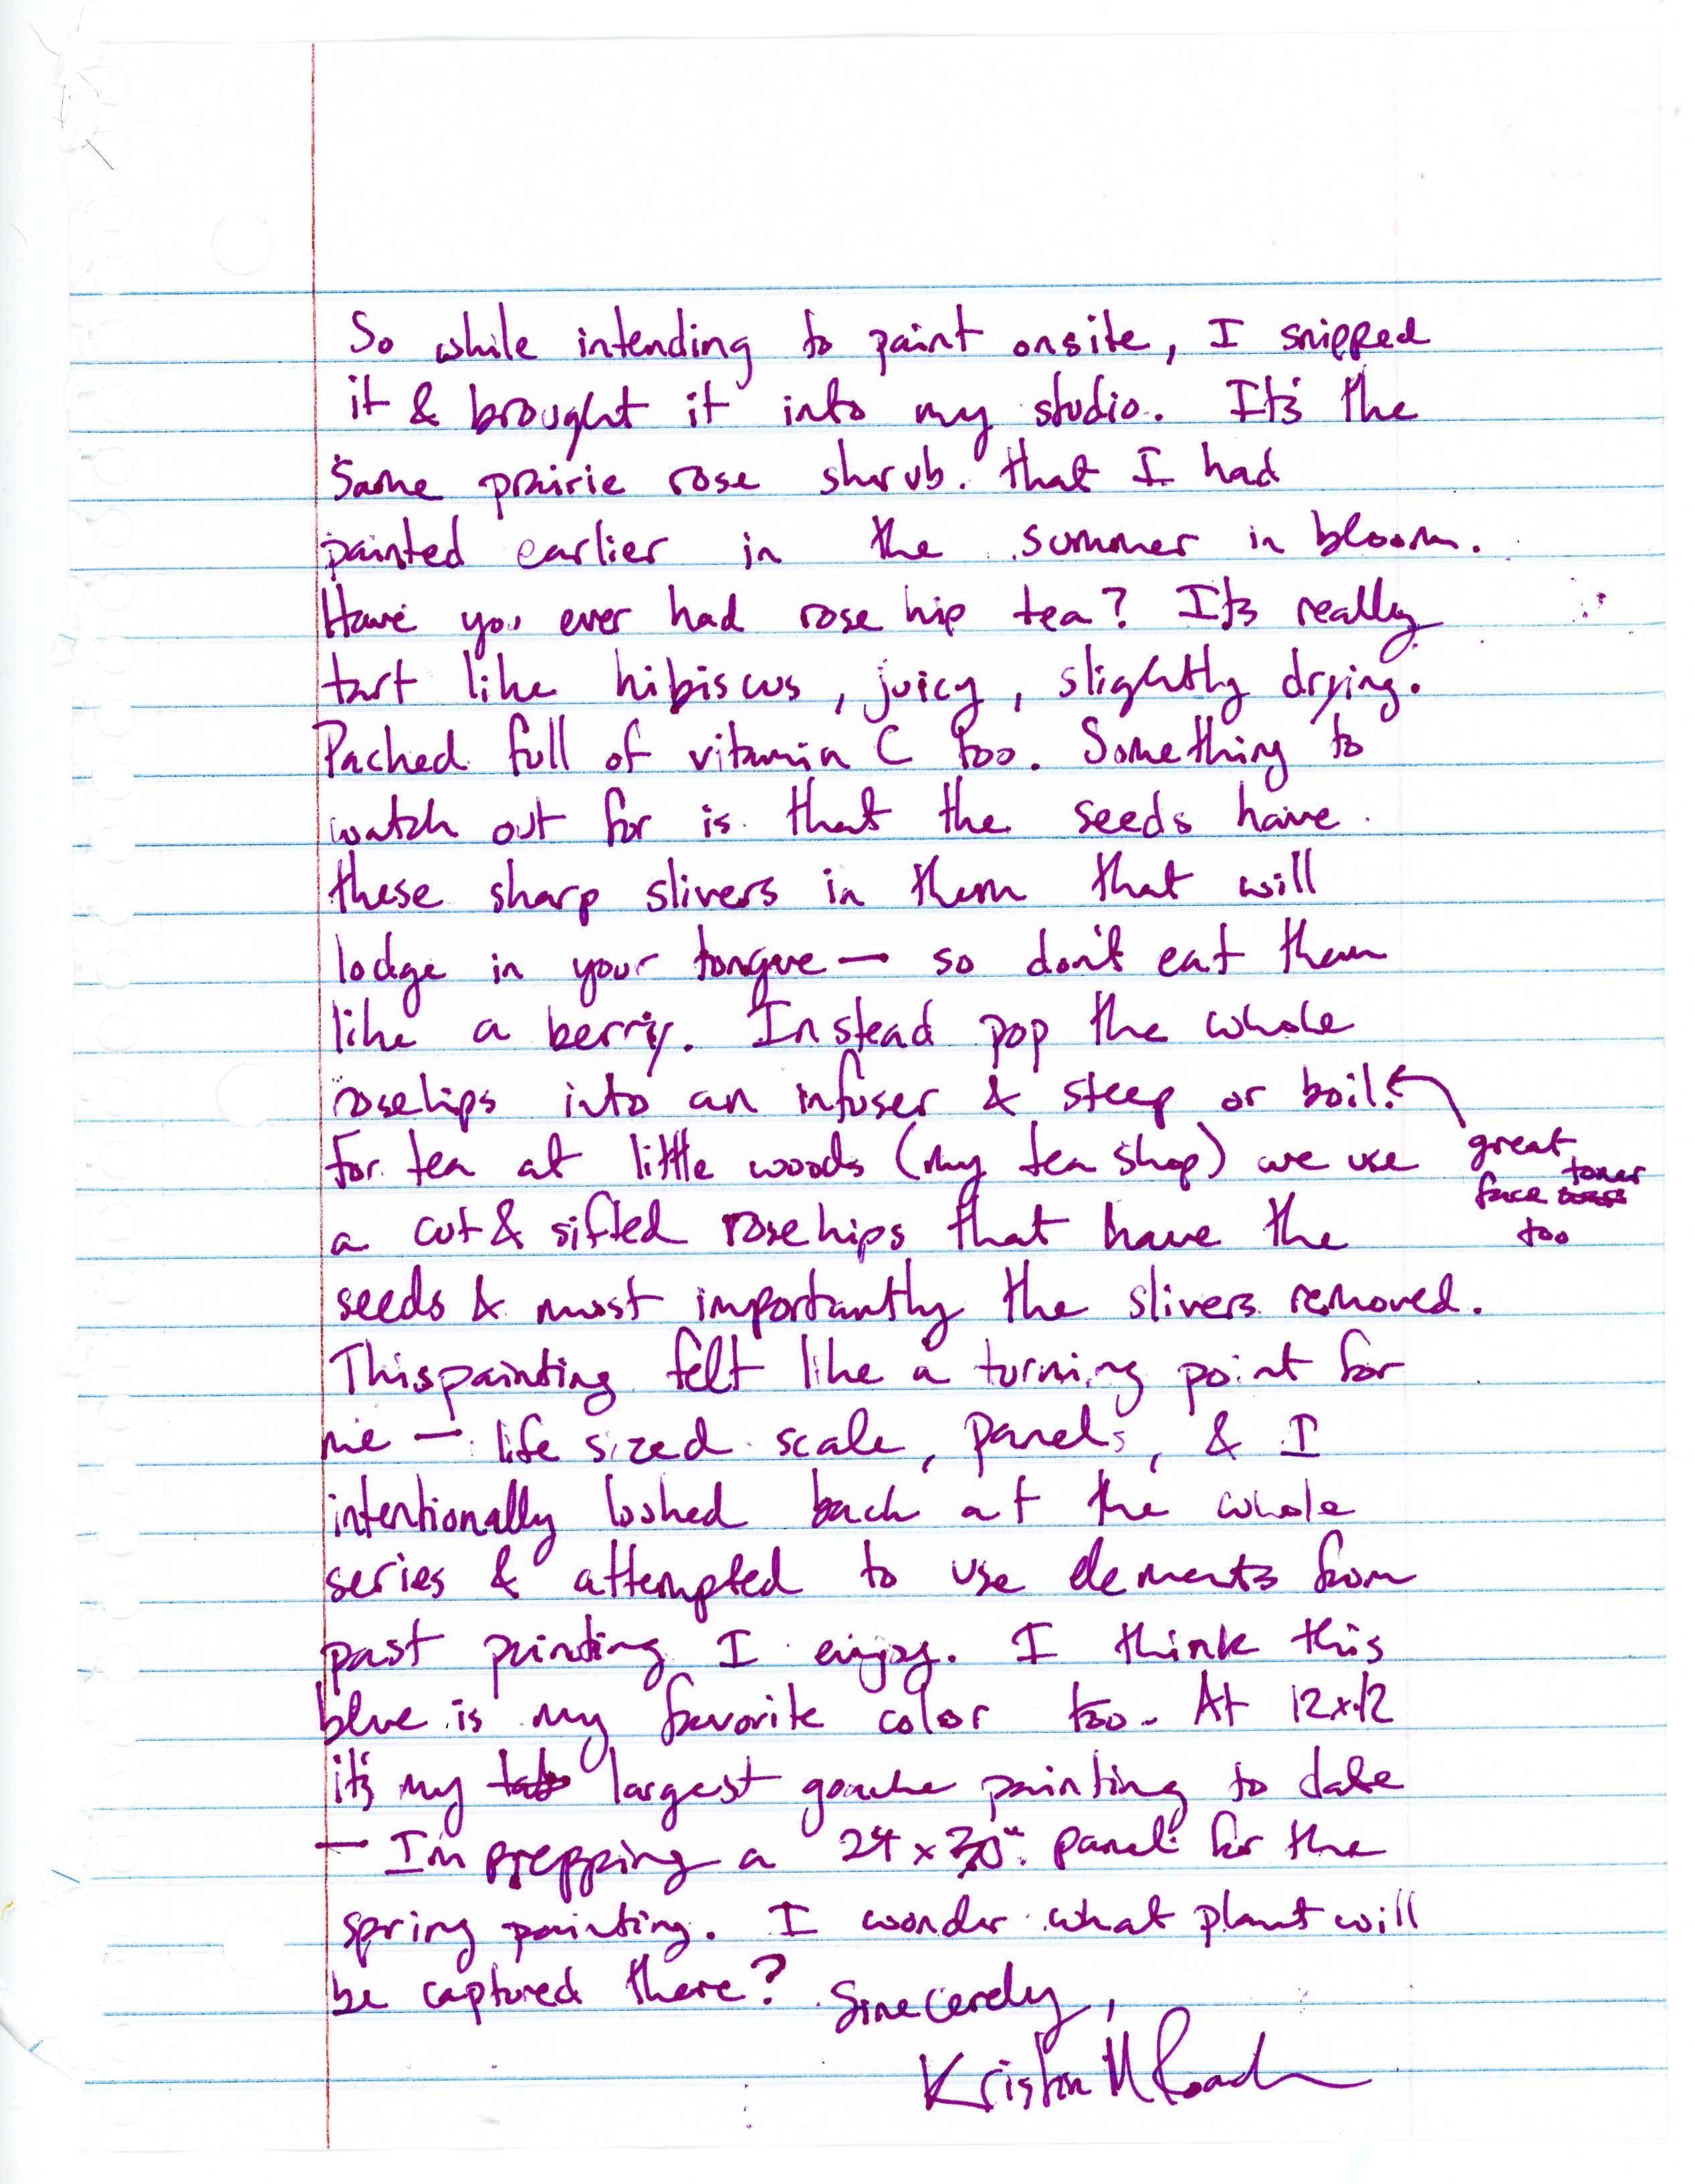 So while intending to paint onsite, I snipped
it & brought it into my studio. It's the
same prairie rose shrub. that I had
painted earlier in the summer in bloom.
Have you ever had rose hip tea? It's really
tart like hibiscus, juicy, slightly drying.
Packed full of vitamin C too. Something to
watch out for is that the seeds have
these sharp slivers in them that will
lodge in your tongue — so don't eat them
like a berry. Instead pop the whole
rosehips into an infuser & steep or boil.
great
face toner
too
For tea at little woods (my tea shop) we use
a cut & sifted rosehips that have the
seeds & most importantly the slivers removed.
This painting felt like a turning point for
me — life sized scale, panels, & I
intentionally looked back at the whole
series & attempted to use elements from
past painting I enjoy. I think this
blue is my favorite color too. At 12x12
it's my largest gouache painting to date
— I'm prepping a 24 x 30" panel for the
spring painting. I wonder what plant will
be captured there? Sincerely,
Kristin M Roach